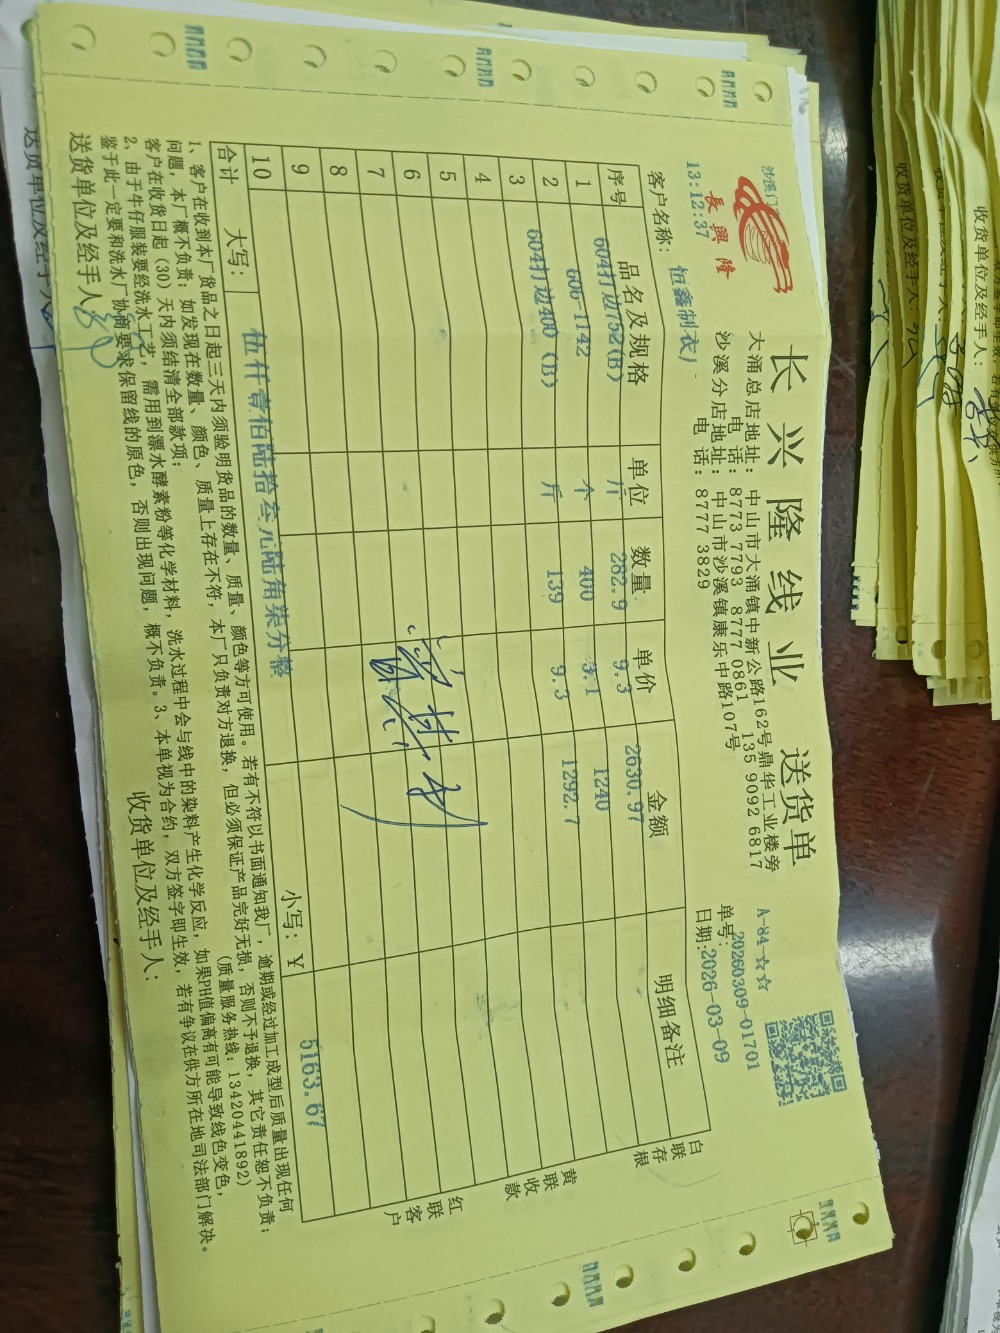 长兴隆线业 送货单
沙溪门
長興隆
13:12:37
大涌总店地址：中山市大涌镇中新公路162号鼎华工业楼旁
电话：8773 7793 8777 0861 135 9092 6817
沙溪分店地址：中山市沙溪镇康乐中路107号
电话：8777 3829
A-84 ☆☆
单号：20260309-01701
日期：2026-03-09
客户名称：恒鑫制衣厂
序号 品名及规格 单位 数量 单价 金额 明细备注
1 604打边752(B) 斤 282.9 9.3 2630.97
2 606-1142 个 400 3.1 1240
3 604打边400 (B) 斤 139 9.3 1292.7
4
5
6
7
8
9
10
合计 大写：伍仟壹佰陆拾叁元陆角柒分整 小写：Y 5163.67
白联存根
黄联收款
红联客户
1、客户在收到本厂货品之日起三天内须验明货品的数量、质量、颜色等方可使用。若有不符以书面通知我厂，逾期或经过加工成型后质量出现任何
问题，本厂概不负责；如发现在数量、颜色、质量上存在不符，本厂只负责对方退换，但必须保证产品完好无损，否则不予退换，其它责任恕不负责；
客户在收货日起（30）天内须结清全部款项； （质量服务热线：13420441892）
2、由于牛仔服装要经洗水工艺，需用到漂水酵素粉等化学材料，洗水过程中会与线中的染料产生化学反应，如果PH值偏高有可能导致线色变色，
鉴于此一定要和洗水厂协商要求保留线的原色，否则出现问题，概不负责。3、本单视为合约，双方签字即生效，若有争议在供方所在地司法部门解决。
送货单位及经手人： 收货单位及经手人：
送货单位及经手人
收货单位及经手人：
收货单位及经手人：